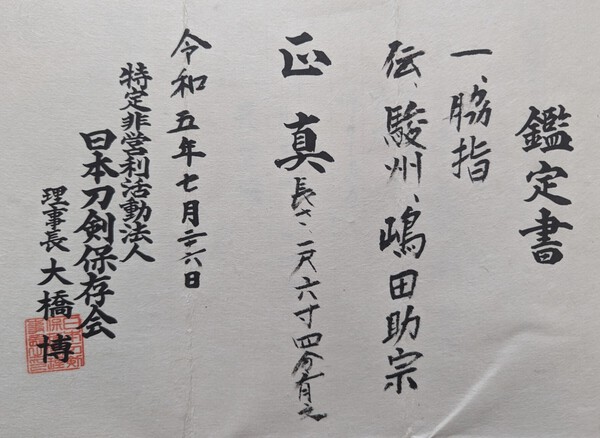 鑑定書
一、脇指
伝、駿州、嶋田助宗
正真 長さ、一尺六寸四分有之
令和五年七月二十六日
特定非営利活動法人
日本刀剣保存会
理事長 大橋博